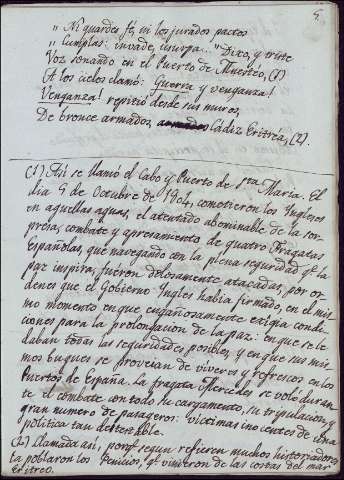 5.
„ Ni guardes fé, ni los jurados pactos
„ Cumplas: invade, usurpa..." Dixo, y triste
Voz sonando en el Puerto de Muestéo, (1)
A los cielos llamó: Guerra y venganza!
Venganza! repitió desde sus muros,
De bronce armados, Cádiz Eritréa, (2).
(1) Asi se llamó el Cabo y Puerto de Sta. Maria. El
dia 5 de Octubre de 1804, cometieron los Ingleses
en aquellas aguas, el atentado abominable de la sor
presa, combate y apresamiento de quatro Fragatas
Españolas, que navegando con la plena seguridad qe. la
paz inspira, fueron dolosamente atacadas, por or-
denes que el Gobierno Ingles habia firmado, en el mis
mo momento en que engañosamente exigia condi-
ciones para la prolongacion de la paz: en que se le
daban todas las seguridades posibles, y en que sus mis
mos buques se proveian de viveres y refrescos en los
Puertos de España. La fragata Mercedes se voló duran-
te el combate con todo su cargamento, su tripulacion y
gran numero de pasageros: victimas inocentes de una
politica tan detestable.
(2) Llamada asi, porqe. segun refieren muchos historiadores,
la poblaron los Fenicios, qe. vinieron de las costas del mar
Eritreo.